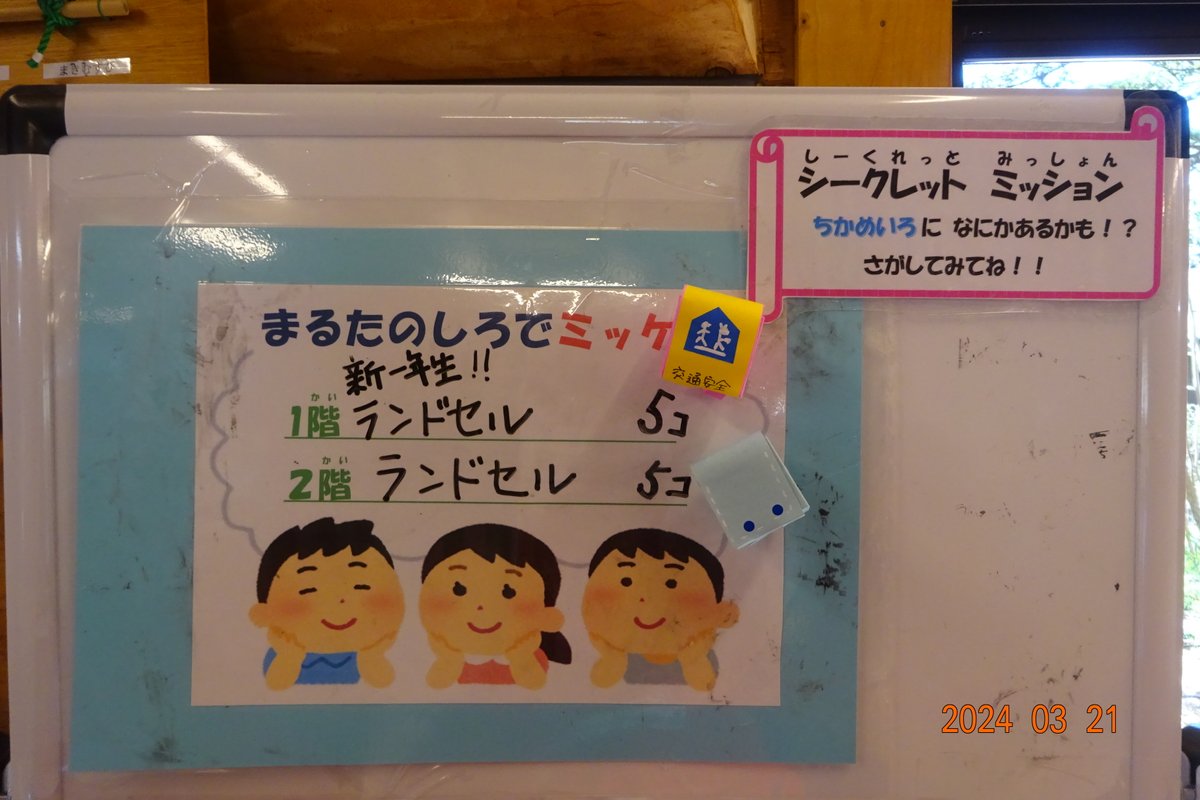 しーくれっと みっしょん
シークレット ミッション
ちかめいろに なにかあるかも！？
さがしてみてね！！
まるたのしろでミッケ
新一年生!!
かい
1階 ランドセル 5コ
かい
2階 ランドセル 5コ
交通安全
2024 03 21